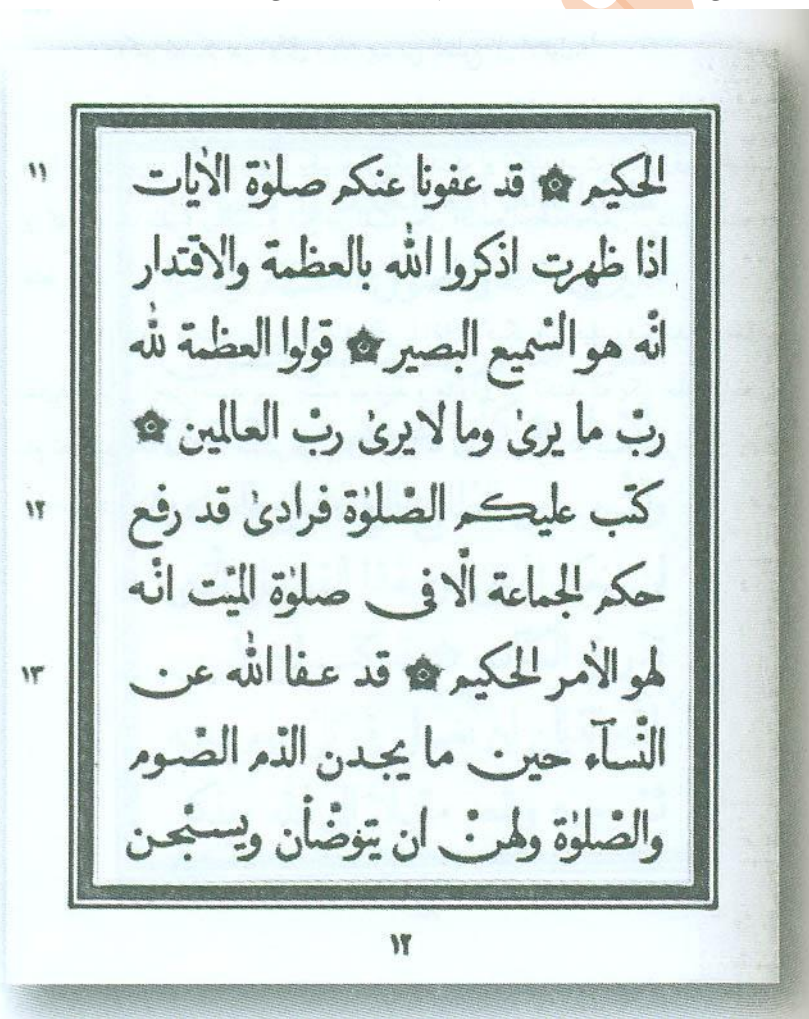 ١١
الحكيم ۞ قد عفونا عنكم صلوٰة الاٰيات
اذا ظهرت اذكروا الله بالعظمة والاقتدار
انّه هو السّميع البصير ۞ قولوا العظمة لله
ربّ ما يرىٰ وما لا يرىٰ ربّ العالمين ۞
١٢
كتب عليكم الصّلوٰة فرادىٰ قد رفع
حكم الجماعة الّا فى صلوٰة الميّت انّه
١٣
لهو الاٰمر الحكيم ۞ قد عفا الله عن
النّسآء حين ما يجدن الدّم الصّوم
والصّلوٰة ولهنّ ان يتوضّأن ويسبّحن
١٢